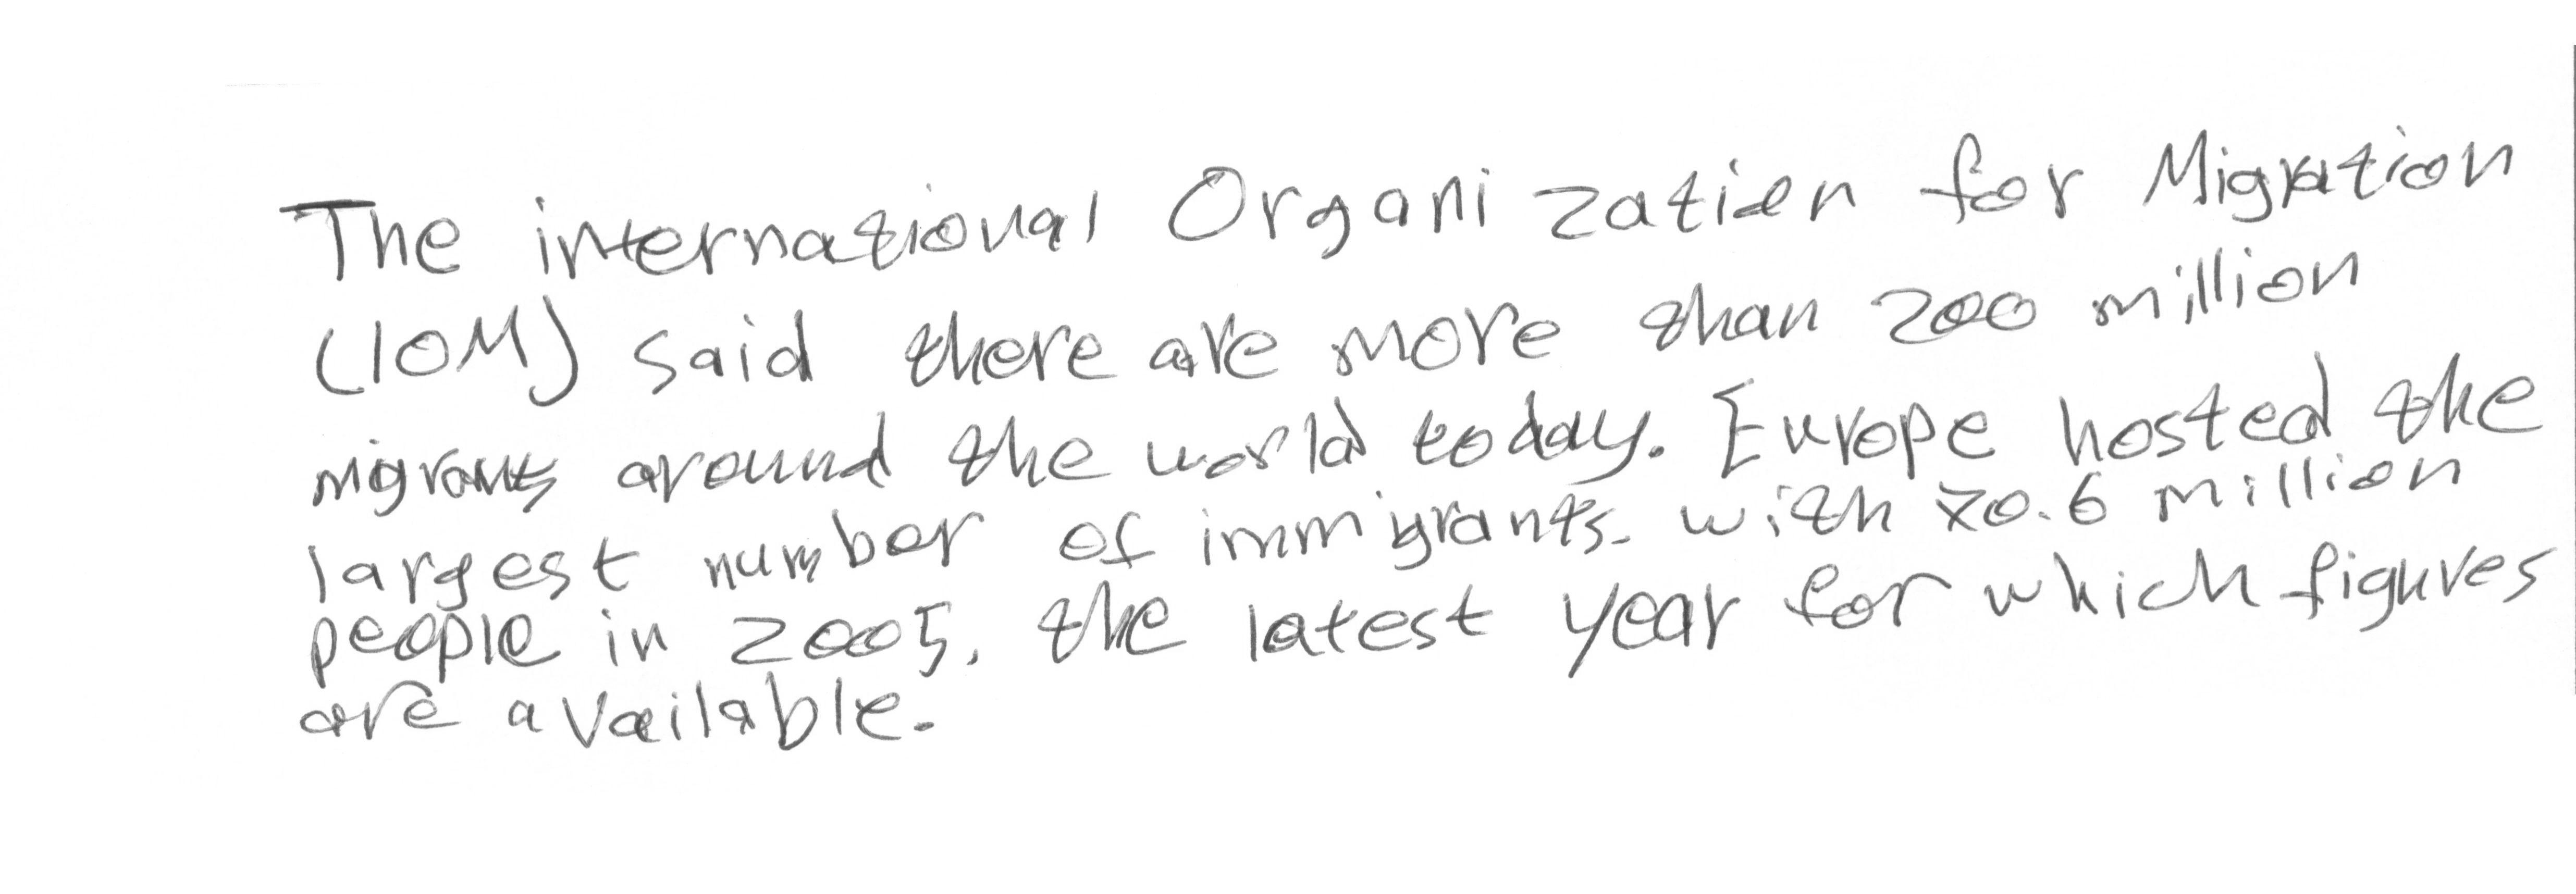 The international Organization for Migration
(IOM) said there are more than 200 million
migrants around the world today. Europe hosted the
largest number of immigrants. with 70.6 million
people in 2005, the latest year for which figures
are available.